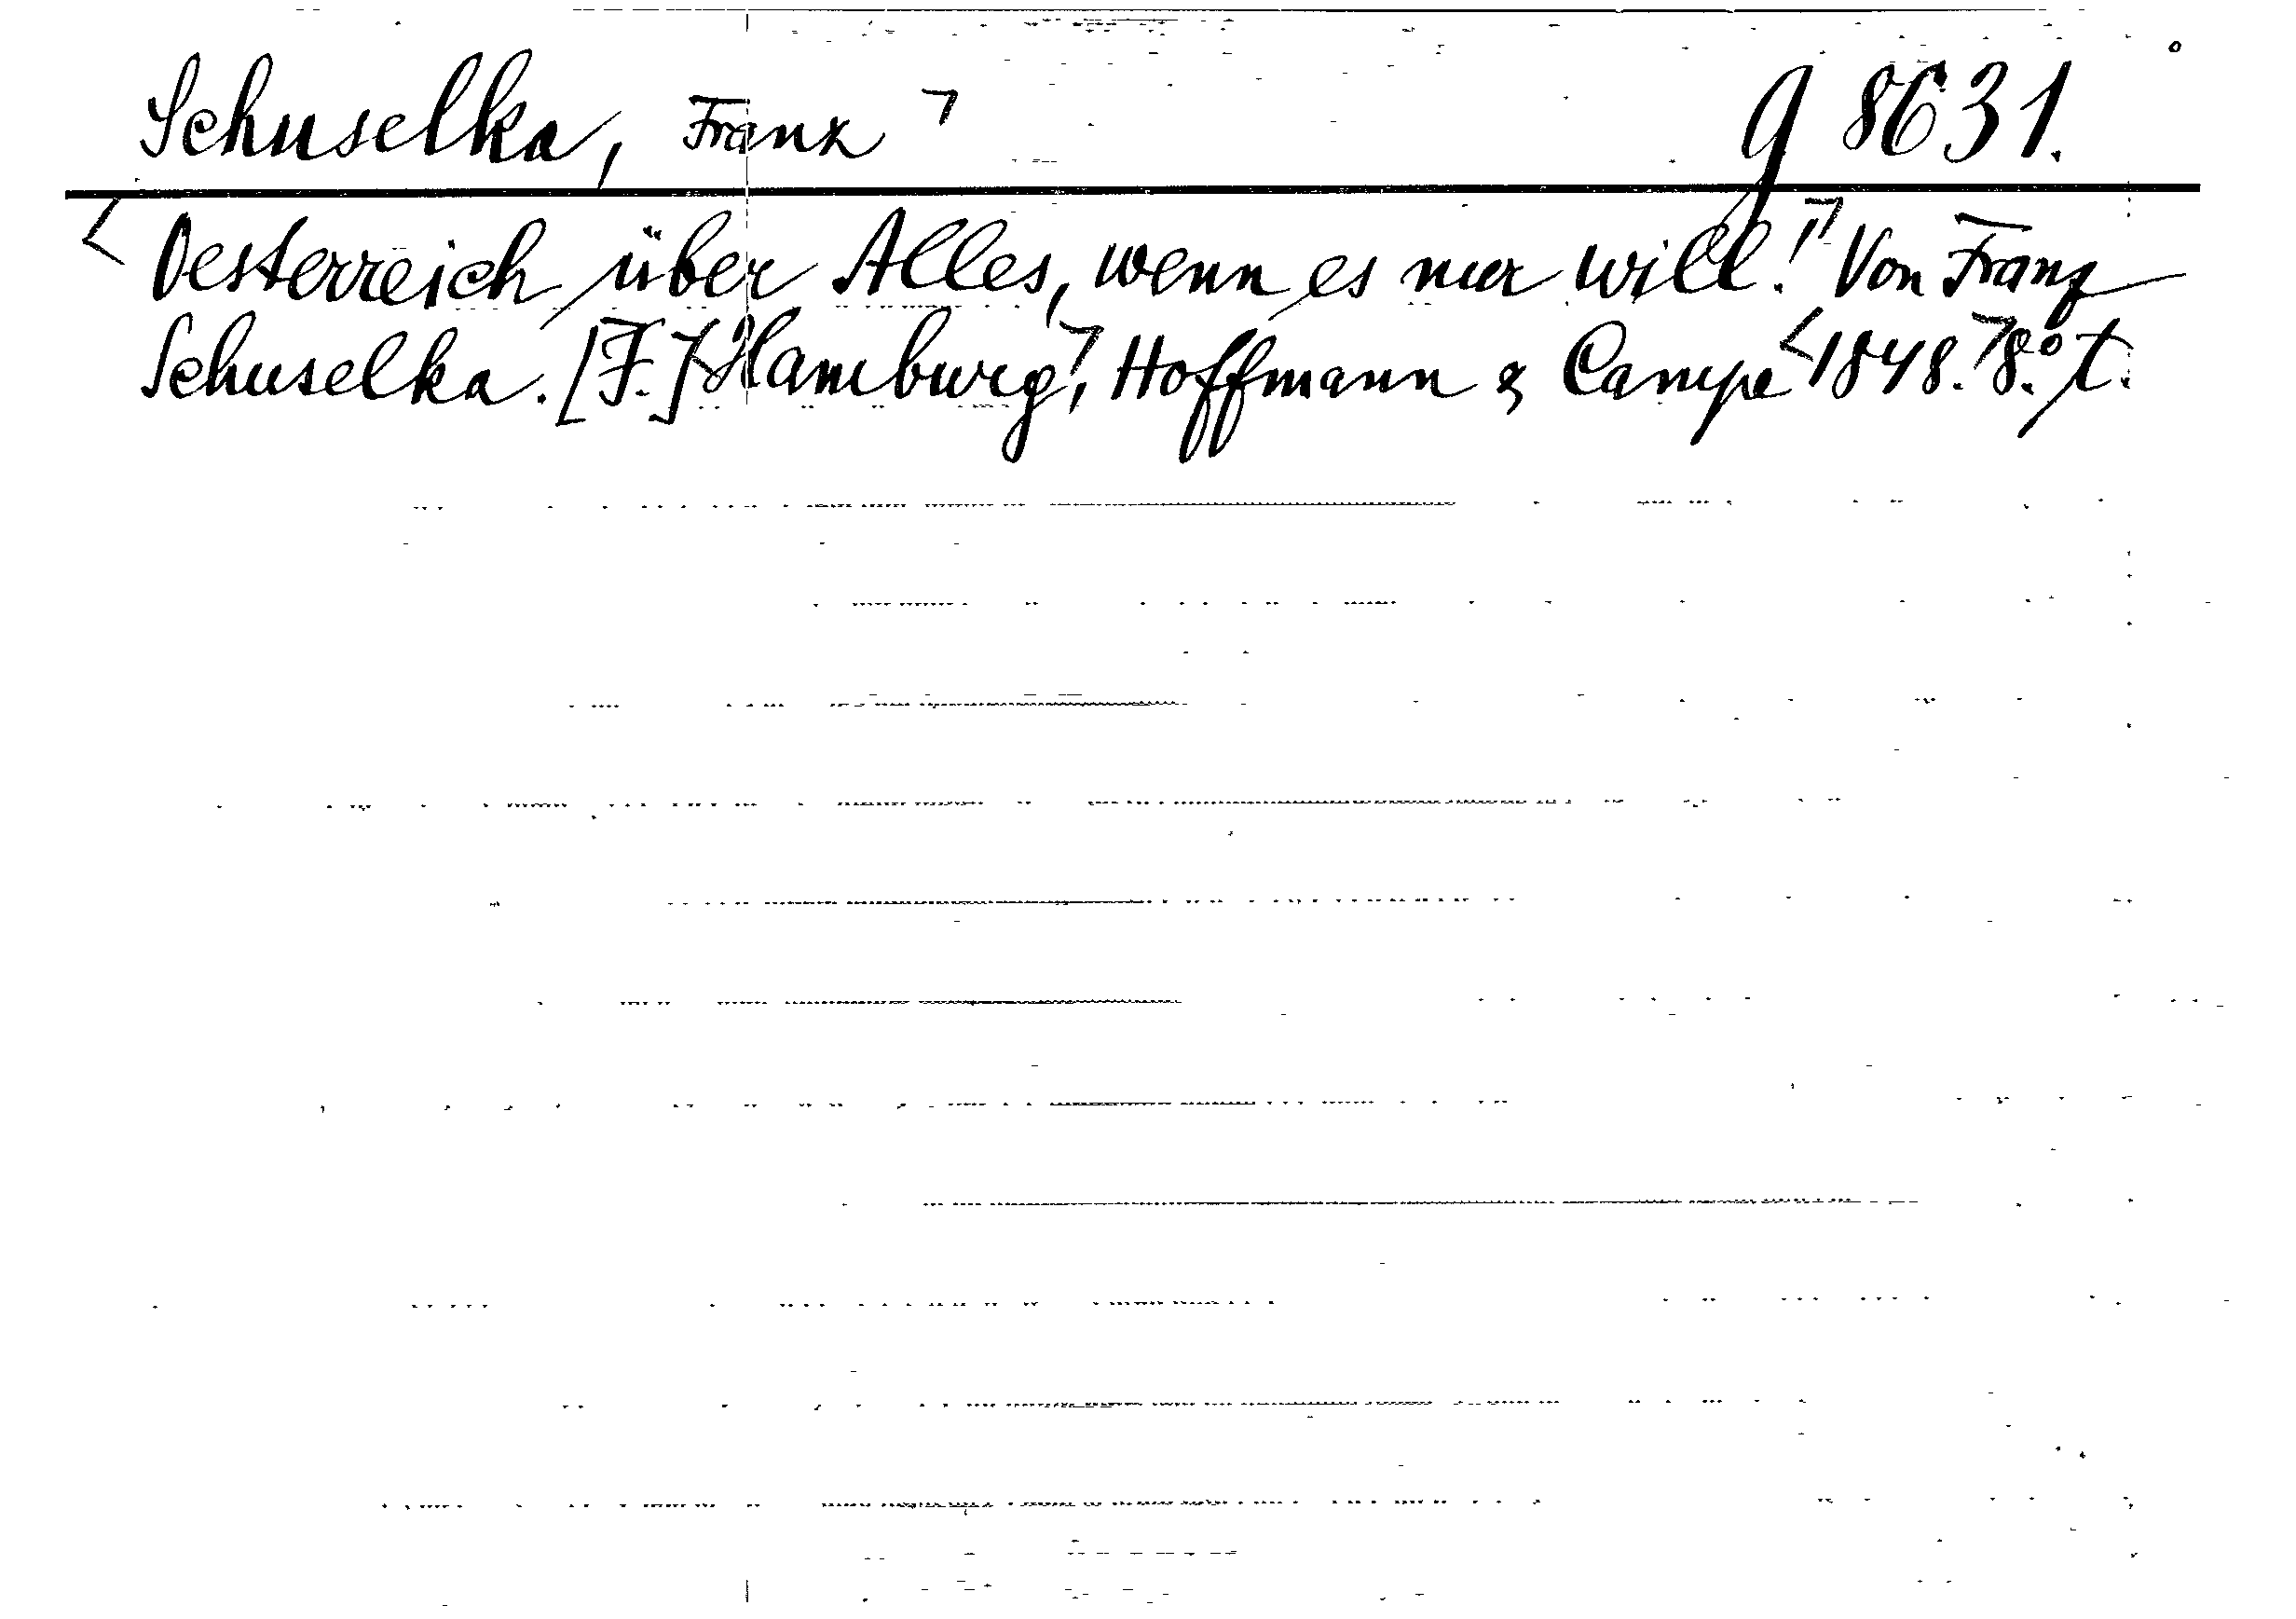 Schuselka, Franz ⌝ g 8631.
< Oesterreich über Alles, wenn es nur will!⌝ Von Franz
Schuselka. [F.] <Hamburg⌝, Hoffmann & Campe <1848.⌝ 8.° t.